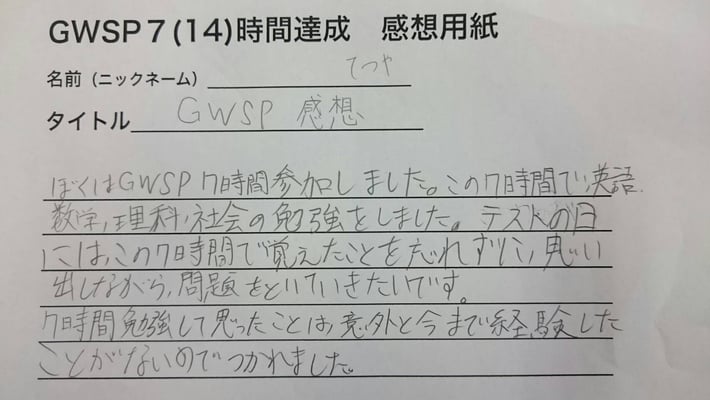 GWSP7(14)時間達成 感想用紙
名前(ニックネーム) てつや
タイトル GWSP 感想
ぼくはGWSP 7時間参加しました。この7時間で、英語、
数学、理科、社会の勉強をしました。テストの日
には、この7時間で覚えたことを忘れずに、思い
出しながら、問題をといていきたいです。
7時間勉強して思ったことは、意外と今まで経験した
ことがないのでつかれました。